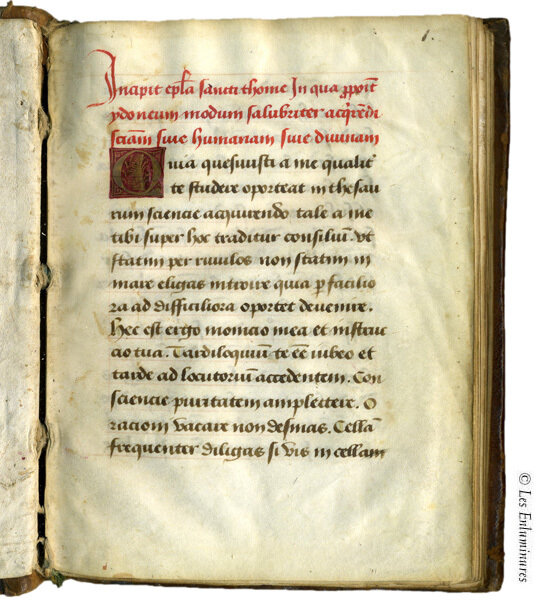 6.
Incipit ep̄la sancti thome In qua p̄ponit
ydoneum modum salubriter acq̄rendi
sciam̄ siue humanam siue diuinam
Quia quesiuisti a me qualit̄
te studere oporteat in thesau
rum sciencie acquirendo tale a me
tibi super hoc traditur consiliū. Vt
statim per riuulos non statim in
mare eligas introire quia p̄ facilio
ra ad difficiliora oportet deuenire.
Hec est ergo monicio mea et instruc
cio tua. Tardiloquium te eē iubeo et
tarde ad locutorium accedentem. Con
sciencie puritatem amplectere. O
racioni vacare non desinas. Cellā
frequenter diligas si vis in cellam
© Les Enluminures